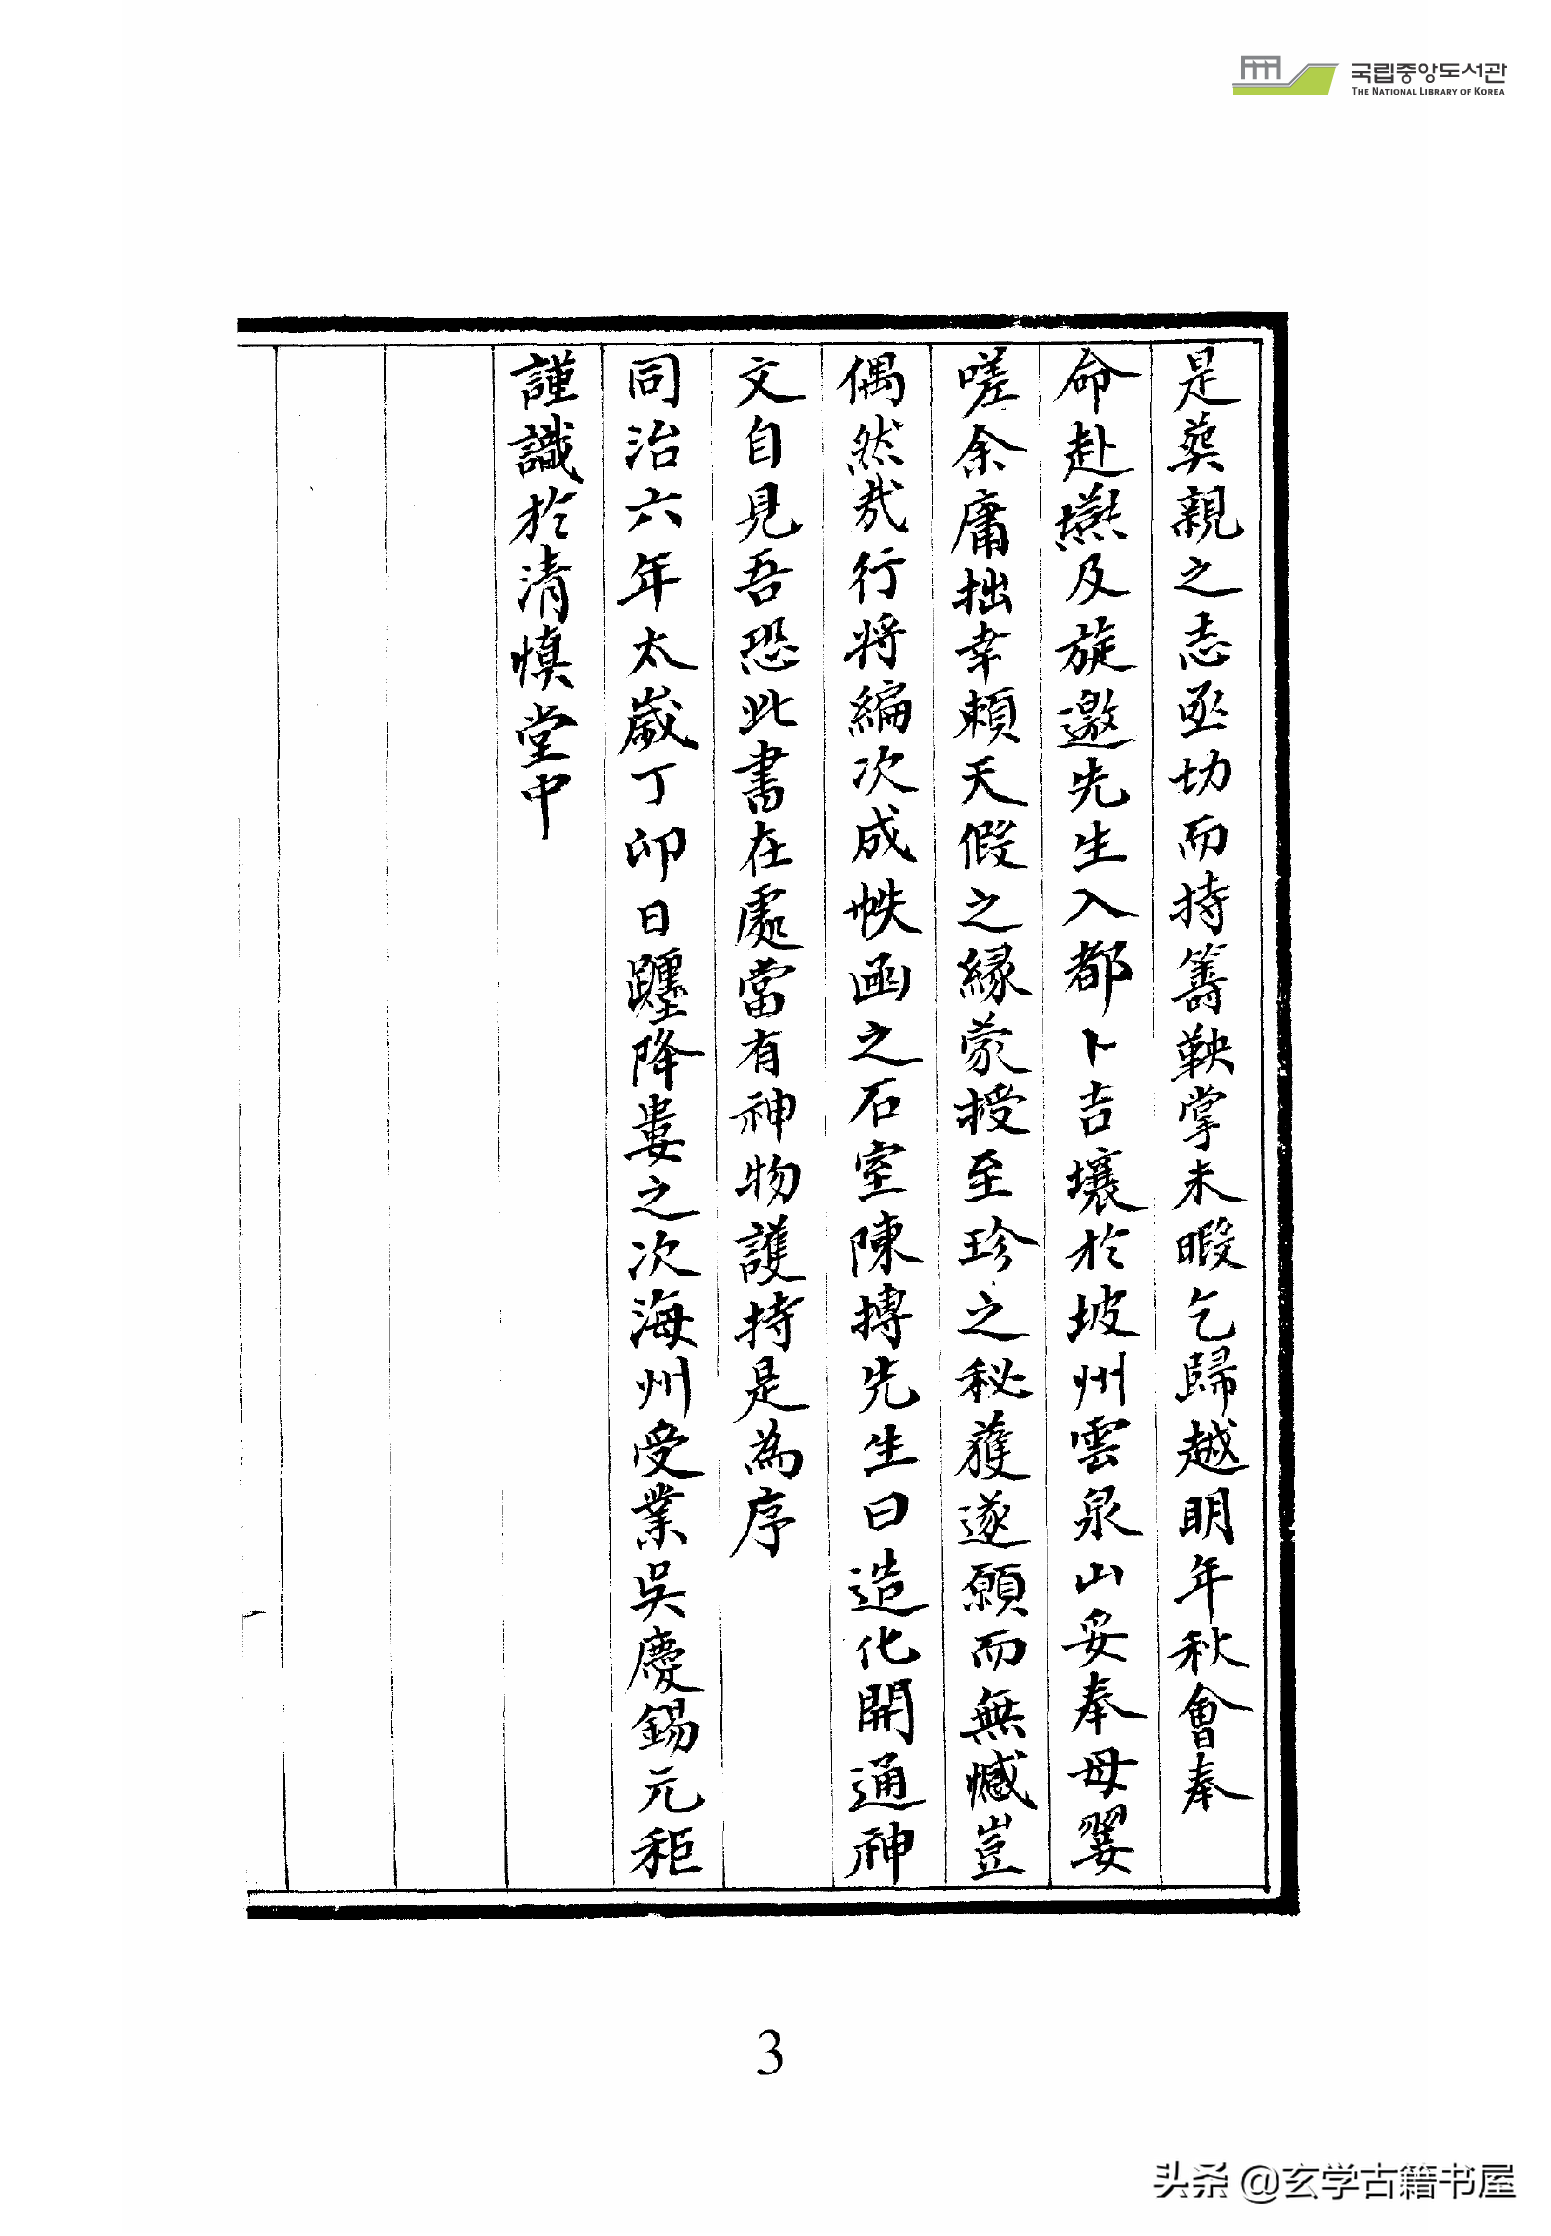 국립중앙도서관
THE NATIONAL LIBRARY OF KOREA
是葬親之志亟切而持籌鞅掌未暇乞歸越明年秋會奉
命赴燕及旋邀先生入都卜吉壤於坡州雲泉山妥奉母窆
嗟余庸拙幸賴天假之緣蒙授至珍之秘獲遂願而無憾豈
偶然哉行將編次成帙函之石室陳摶先生曰造化開通神
文自見吾恐此書在處當有神物護持是為序
同治六年太歲丁卯日躔降婁之次海州受業吳慶錫元秬
謹識於清慎堂中
3
头条 @玄学古籍书屋